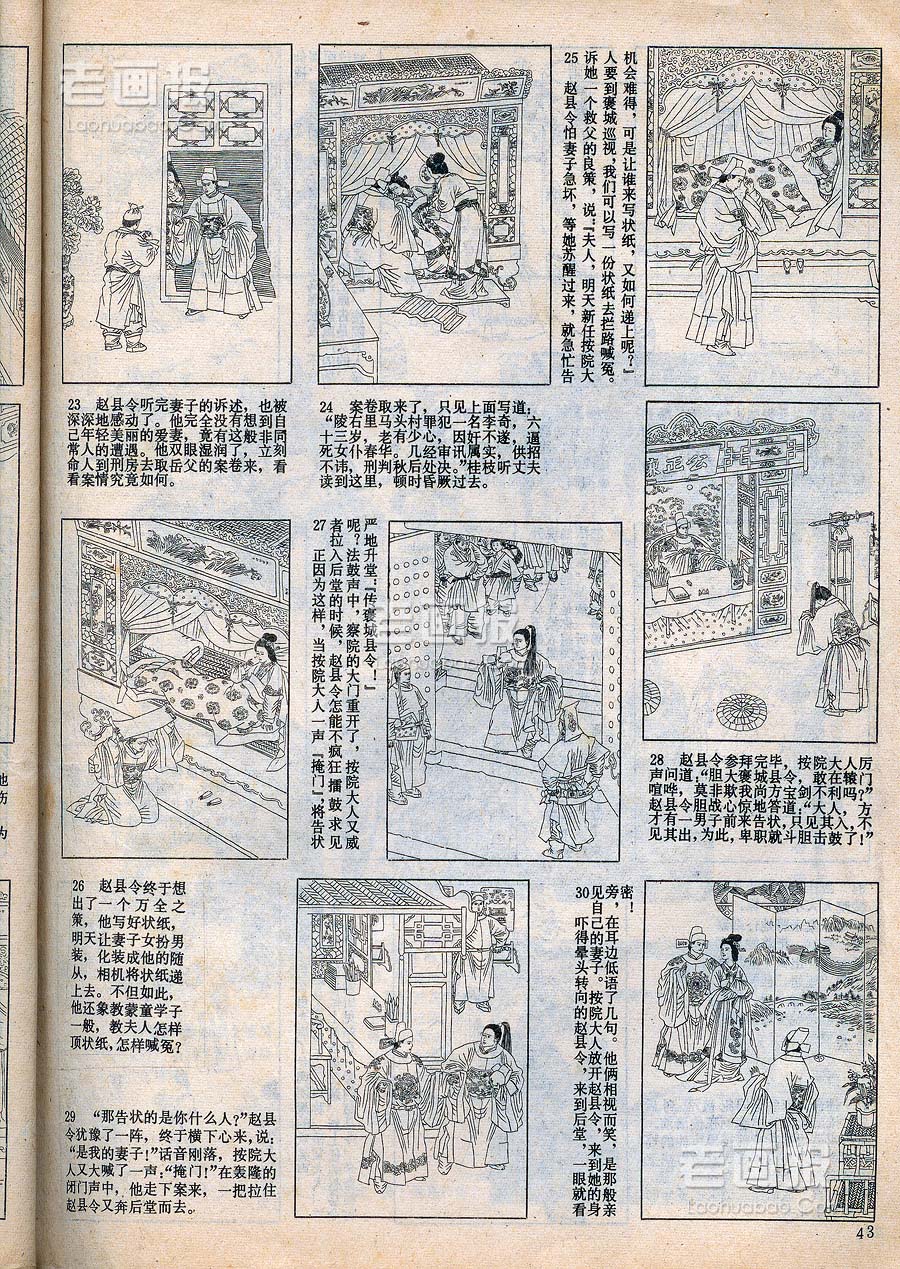 老画报
Laohuabao.Co
23 赵县令听完妻子的诉述，也被
深深地感动了。他完全没有想到自
己年轻美丽的爱妻，竟有这般非同
常人的遭遇。他双眼湿润了，立刻
命人到刑房去取岳父的案卷来，看
看案情究竟如何。
24 案卷取来了，只见上面写道：
“陵右里马头村罪犯一名李奇，六
十三岁，老有少心，因奸不遂，逼
死女仆春华。几经审讯属实，供招
不讳，刑判秋后处决。”桂枝听丈夫
读到这里，顿时昏厥过去。
25 赵县令怕妻子急坏，等她苏醒过来，就急忙告
诉她一个救父的良策，说：『夫人，明天新任按院大
人要到褒城巡视，我们可以写一份状纸去拦路喊冤。
机会难得，可是让谁来写状纸，又如何递上呢？』
26 赵县令终于想
出了一个万全之
策，他写好状纸，
明天让妻子女扮男
装，化装成他的随
从，相机将状纸递
上去。不但如此，
他还象教蒙童学子
一般，教夫人怎样
顶状纸，怎样喊冤？
27 正因为这样，当按院大人一声『掩门』将告状
者拉入后堂的时候，赵县令怎能不疯狂擂鼓求见
呢？法鼓声中，察院的大门重开了，按院大人又威
严地升堂：『传褒城县令！』
老画报
公正廉
28 赵县令参拜完毕，按院大人厉
声问道：“胆大褒城县令，敢在辕门
喧哗，莫非欺我尚方宝剑不利吗？”
赵县令胆战心惊地答道：“大人，方
才有一男子前来告状，只见其入，不
见其出，为此，卑职就斗胆击鼓了！”
29 “那告状的是你什么人？”赵县
令犹豫了一阵，终于横下心来，说：
“是我的妻子！”话音刚落，按院大
人又大喊了一声：“掩门！”在轰隆的
闭门声中，他走下案来，一把拉住
赵县令又奔后堂而去。
30 吓得晕头转向的赵县令，来到后堂，一眼就看
见自己的妻子。按院大人放开赵县令，来到她的身
旁，在耳边低语了几句。他俩相视而笑，是那般亲
密！
老画报
Laohuabao.Co
43